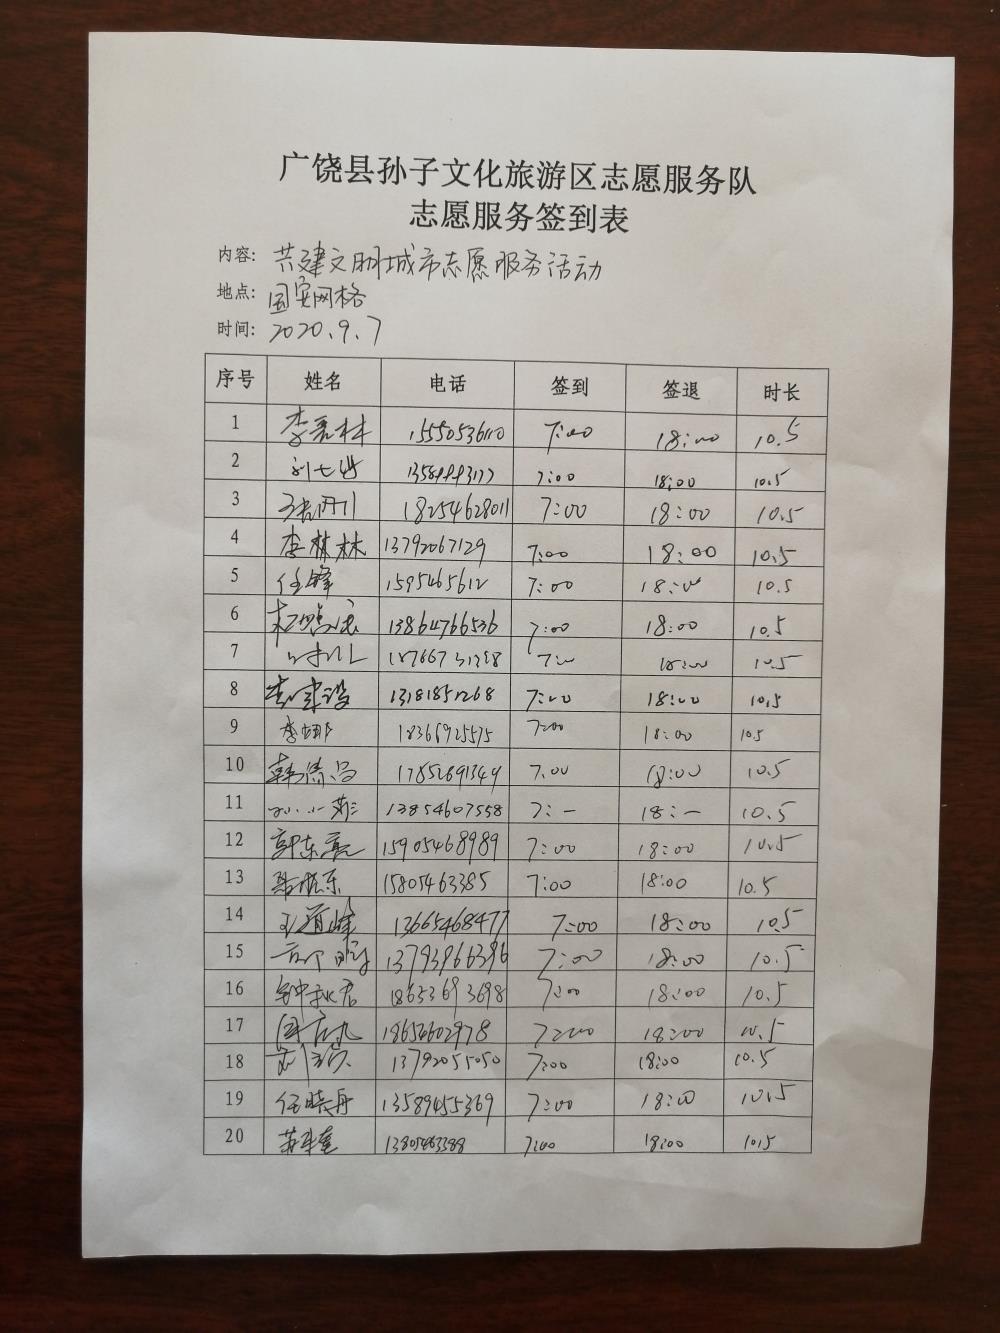 广饶县孙子文化旅游区志愿服务队
志愿服务签到表
内容: 共建文明城市志愿服务活动
地点: 国安网格
时间: 2020.9.7
序号 姓名 电话 签到 签退 时长
1 李亮林 15550536110 7:00 18:00 10.5
2 7:00 18:00 10.5
3 18254628011 7:00 18:00 10.5
4 李林林 13792067129 7:00 18:00 10.5
5 任峰 1595465612 7:00 18:00 10.5
6 13864766536 7:00 18:00 10.5
7 7:00 18:00 10.5
8 13181851268 7:00 18:00 10.5
9 李娜 18366925575 7:00 18:00 10.5
10 17852691349 7:00 18:00 10.5
11 13854607558 7:- 18:- 10.5
12 郭东亮 15905468989 7:00 18:00 10.5
13 15805463385 7:00 18:00 10.5
14 王道峰 13665468477 7:00 18:00 10.5
15 13793966396 7:00 18:00 10.5
16 钟秋君 18653693698 7:00 18:00 10.5
17 18654602978 7:00 18:00 10.5
18 13792055050 7:00 18:00 10.5
19 任晓丹 13589455369 7:00 18:00 10.5
20 13805463388 7:00 18:00 10.5